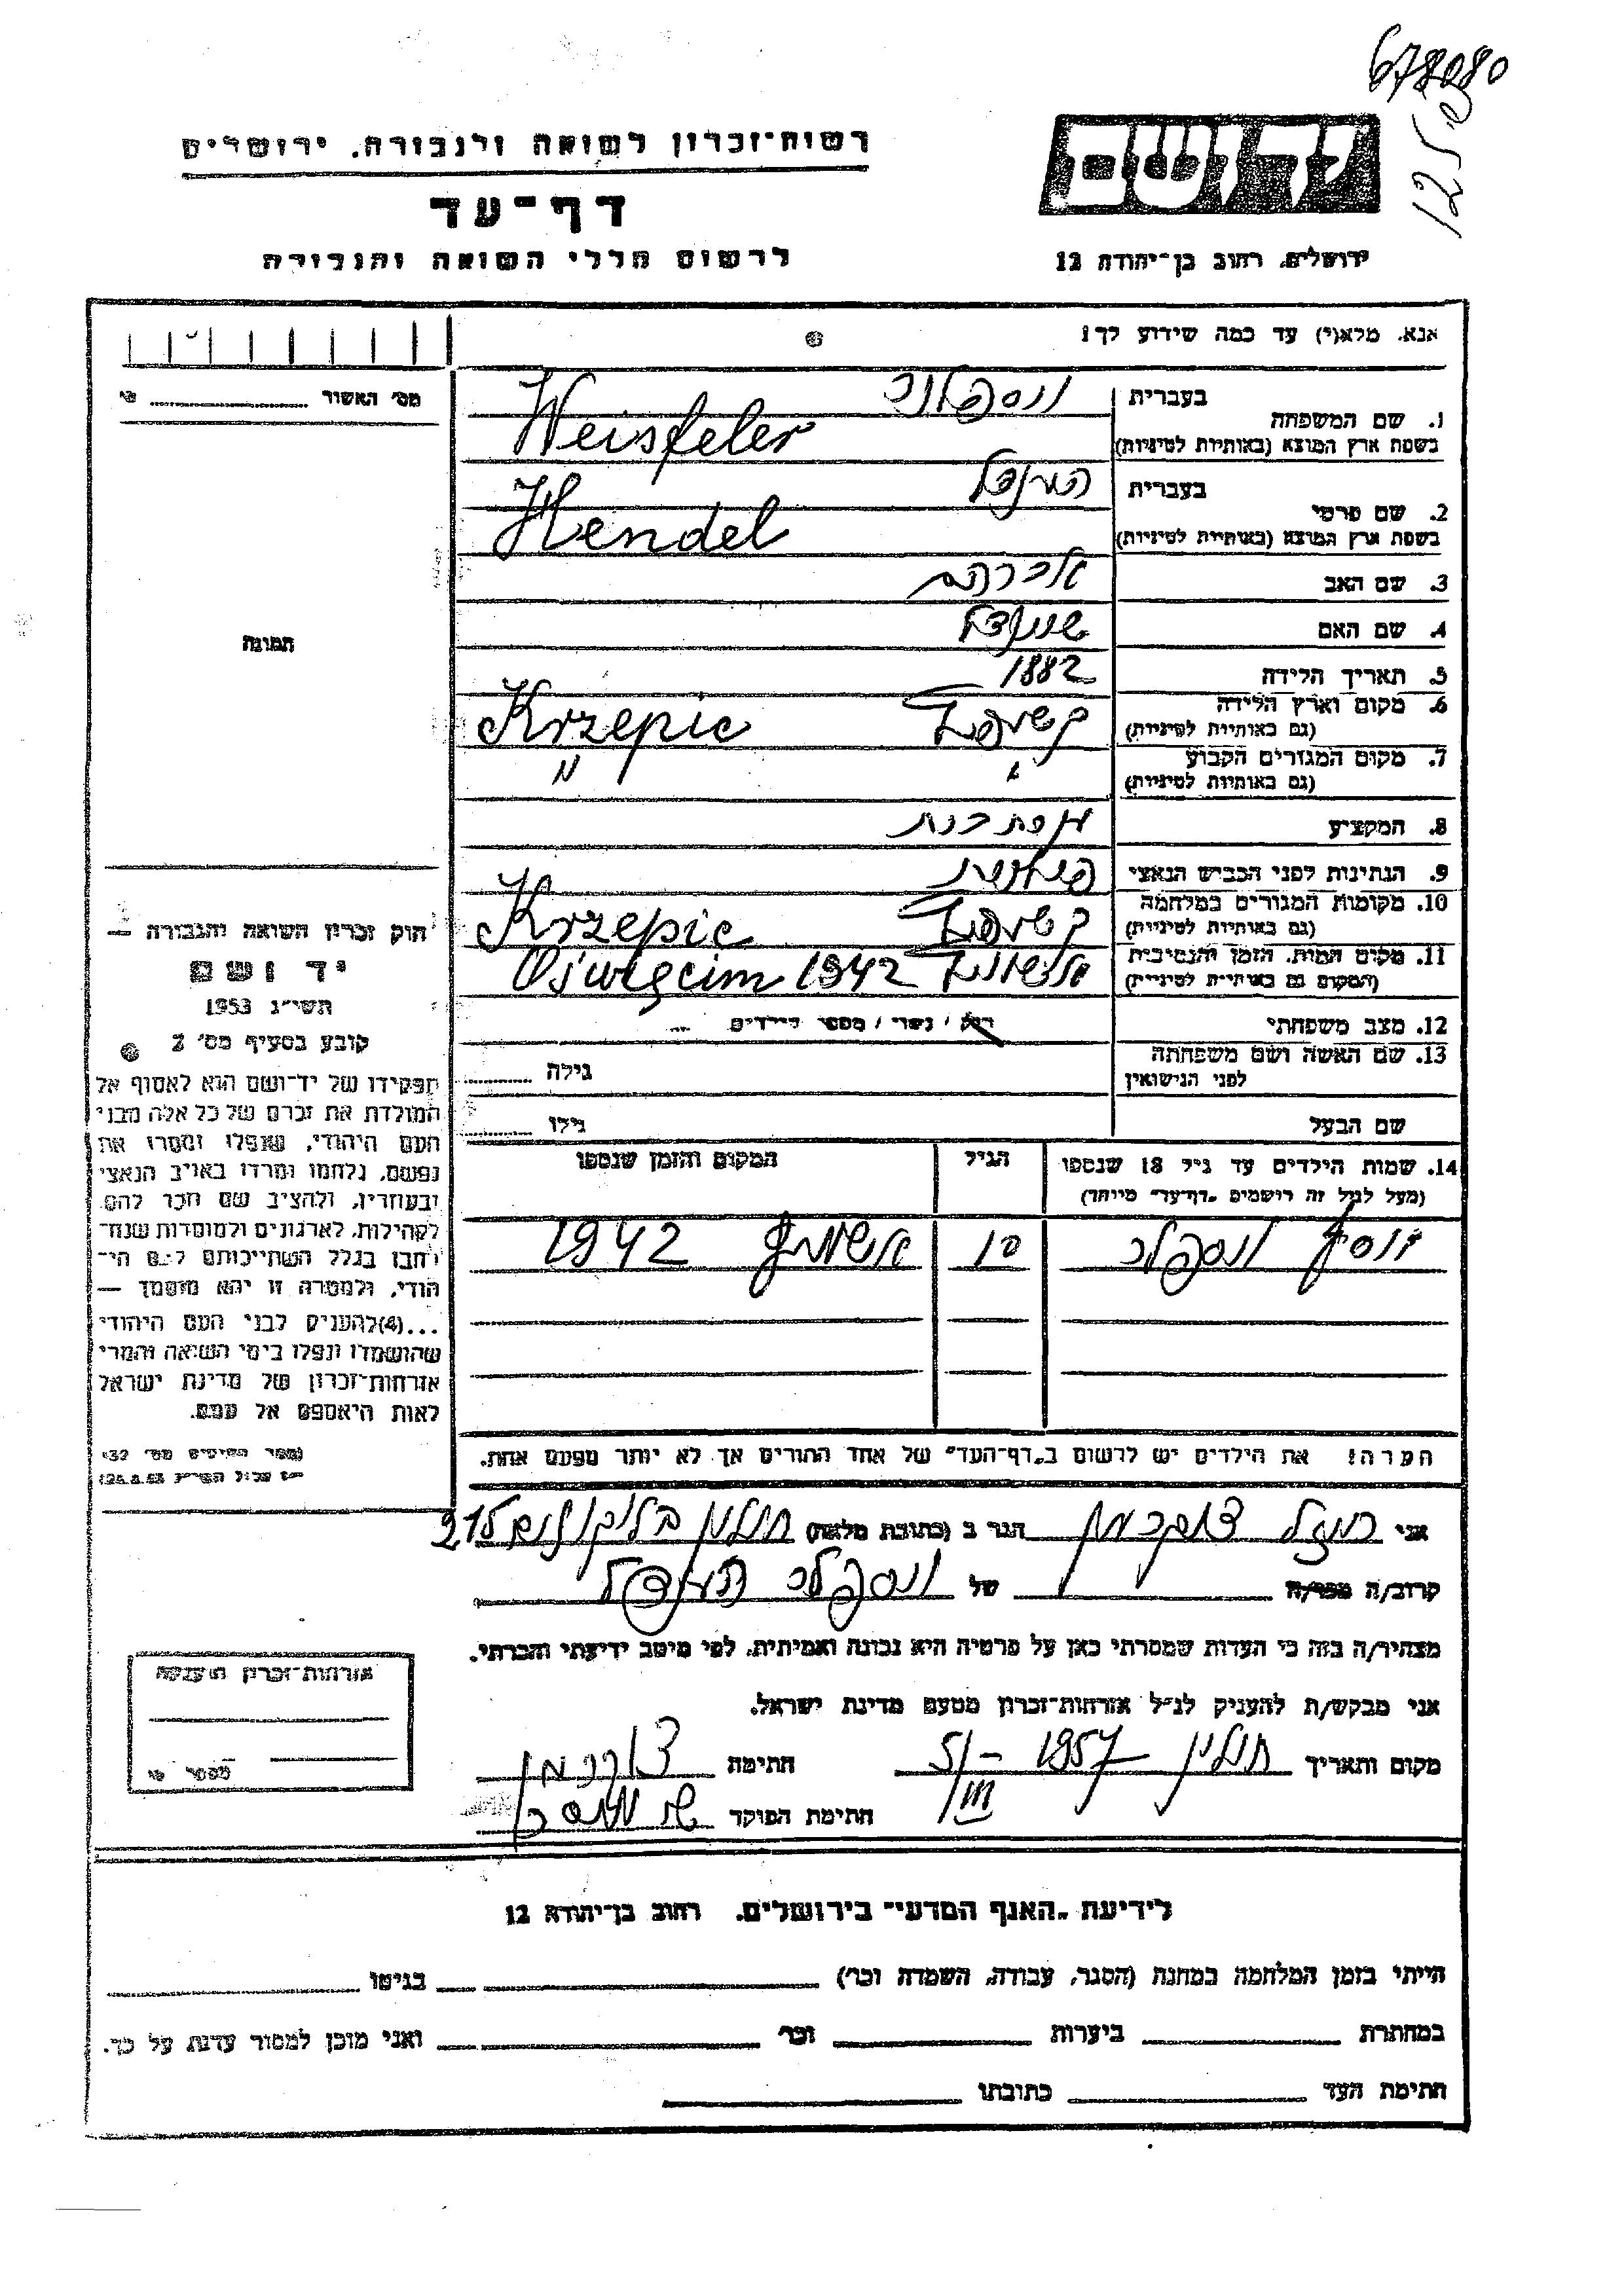 678080
125
רשות־זכרון לשואה ולגבורה, ירושלים
יד ושם
דף־עד
לרשום חללי השואה והגבורה
ירושלים, רחוב בן־יהודה 12
אנא, מלא(י) עד כמה שידוע לך!
מס' האשור
1. שם המשפחה
בעברית
בשפת ארץ המוצא (באותיות לטיניות) Weisfeler
2. שם פרטי
בעברית הענדל
בשפת ארץ המוצא (באותיות לטיניות) Hendel
3. שם האב אברהם
4. שם האם שיינדל
5. תאריך הלידה 1882
6. מקום וארץ הלידה
(גם באותיות לטיניות) Krzepic
7. מקום המגורים הקבוע "
(גם באותיות לטיניות)
8. המקצוע
9. הנתינות לפני הכיבוש הנאצי
10. מקומות המגורים במלחמה
(גם באותיות לטיניות) Krzepic
11. מקום המות, הזמן והנסיבות
(המקום גם באותיות לטיניות) Oświęcim 1942
12. מצב משפחתי רווק / נשוי / מספר הילדים ...
13. שם האשה ושם משפחתה
לפני הנישואין גילה
שם הבעל גילו
14. שמות הילדים עד גיל 18 שנספו הגיל המקום והזמן שנספו
(מעל לגיל זה רושמים „דף־עד” מיוחד)
יוסף 10 1942
תמונה
חוק זכרון השואה והגבורה —
יד ושם
תשי״ג 1953
קובע בסעיף מס' 2
תפקידו של יד־ושם הוא לאסוף אל
המולדת את זכרם של כל אלה מבני
העם היהודי, שנפלו ומסרו את
נפשם, נלחמו ומרדו באויב הנאצי
ובעוזריו, ולהציב שם וזכר להם,
לקהילות, לארגונים ולמוסדות שנח־
רבו בגלל השתייכותם לעם הי־
הודי, ולמטרה זו יהא מוסמך —
...(4) להעניק לבני העם היהודי
שהושמדו ונפלו בימי השואה והמרי
אזרחות־זכרון של מדינת ישראל
לאות היאספם אל עמם.
הערה! את הילדים יש לרשום ב„דף־העד” של אחד ההורים אך לא יותר מפעם אחת.
אני הגר ב (כתובת מלאה) חולון 215
קרוב/ה מכר/ה של הענדל
מצהיר/ה בזה כי העדות שמסרתי כאן על פרטיה היא נכונה ואמיתית, לפי מיטב ידיעתי והכרתי.
אני מבקש/ת להעניק לנ״ל אזרחות־זכרון מטעם מדינת ישראל.
מקום ותאריך חולון 5/III – 1957 חתימה
חתימת הפוקד
אזרחות־זכרון הוענקה
מספר
לידיעת „האגף המדעי” בירושלים, רחוב בן־יהודה 12
הייתי בזמן המלחמה במחנה (הסגר, עבודה, השמדה וכו') בגיטו
במחתרת ביערות וכו' ואני מוכן למסור עדות על כך.
חתימת העד כתובתו